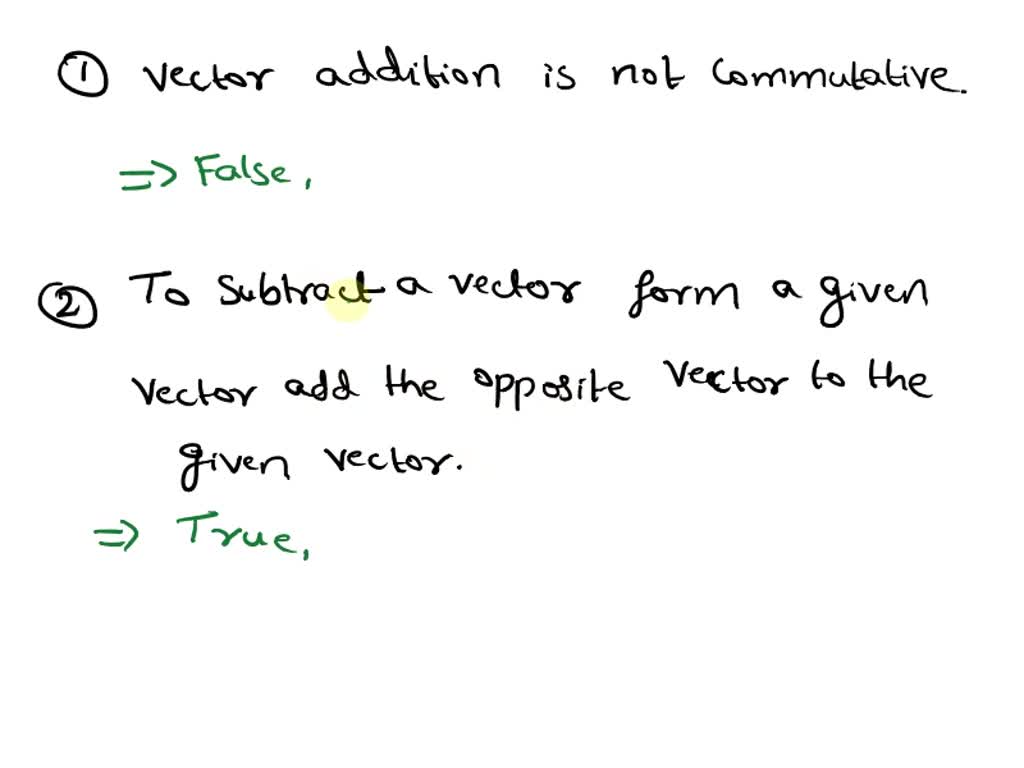 ① Vector addition is not commutative.
=> False,
② To subtract a vector form a given
vector add the opposite vector to the
given vector.
=> True,